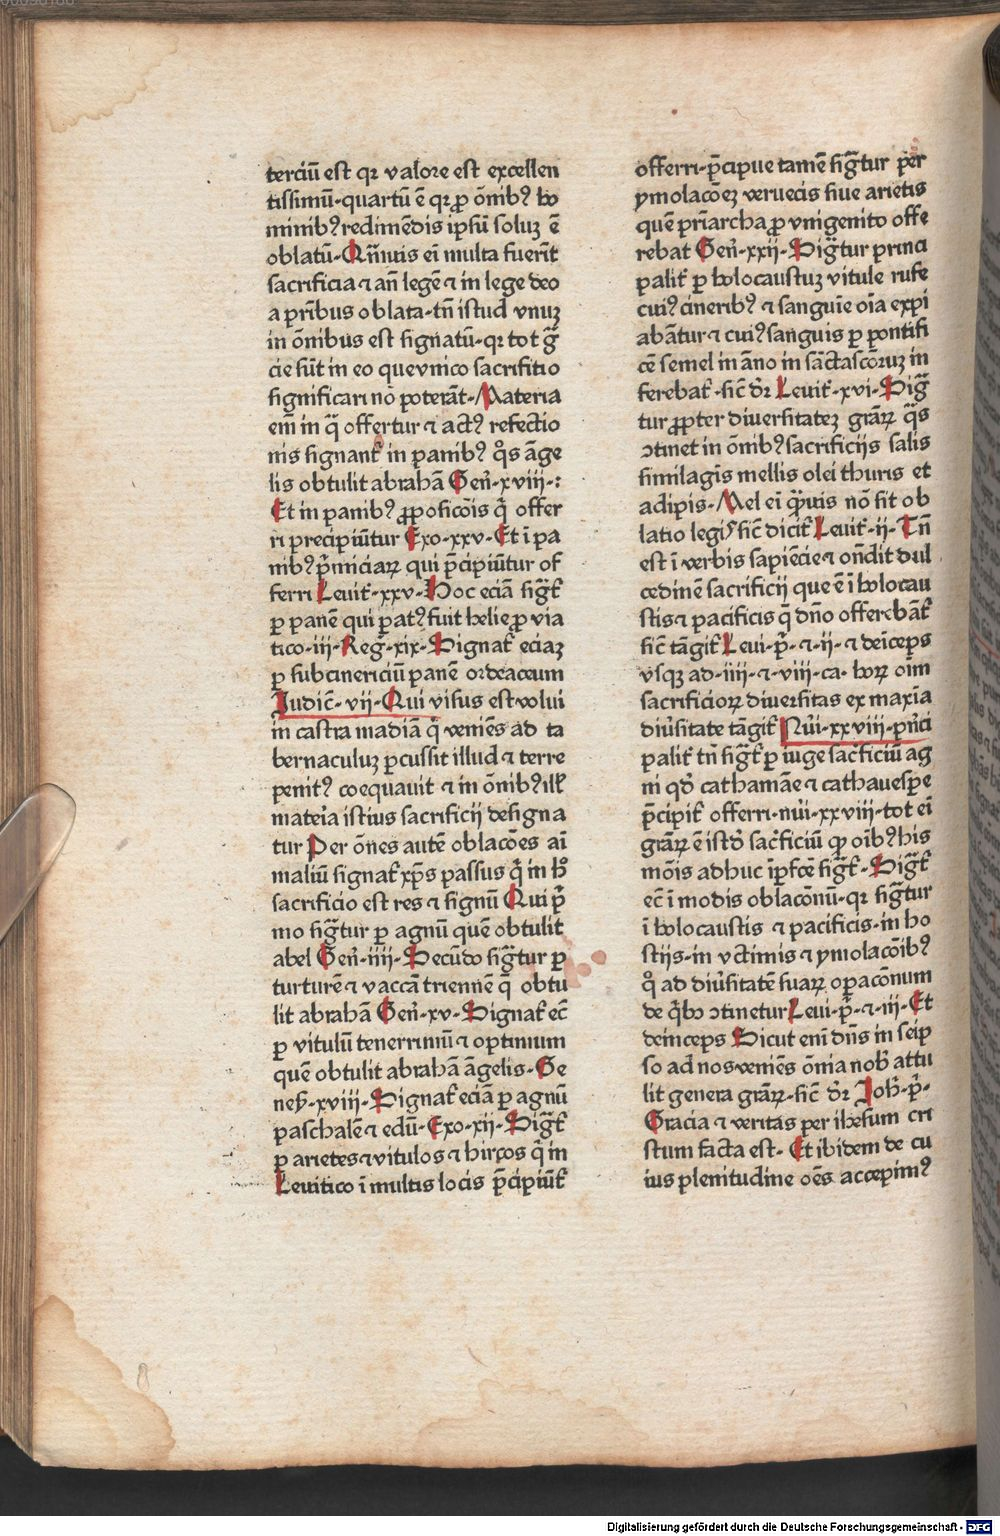 terciū est qr valore est excellen
tissimū·quartū ē qr ꝓ ōnibꝰ ho
minibꝰ redimēdis ipsū soluꝫ ē
oblatū·Qn̄uis ei multa fuerīt
sacrificia ⁊ an̄ legē ⁊ in lege deo
a pr̄ibus oblata·tn̄ istud vnuꝫ
in ōnibus est signatū·qr tot gr̄
cie sūt in eo que vnico sacrifitio
significari nō poterāt·Materia
em̄ in q̄ offertur ⁊ actꝰ refectio
nis signant᷑ in panibꝰ q̊s āge
lis obtulit abrahā Gen̄·xviii·:
Et in panibꝰ ꝓposicōis q̄ offer
ri precipiūtur Exo·xxv·Et ī pa
nibꝰ p̄miciaꝝ qui p̄cipiūtur of
ferri Leuit᷑·xxv·Hoc eciā sigt᷑
ꝑ panē qui patꝰ fuit helie ꝓ via
tico·iii·Reg̃·xix·Signat᷑ eciaꝫ
ꝑ subcinericiū panē ordeaceum
Iudic̄·vii·Qui visus est volui
in castra madiā q̇ veniēs ad ta
bernaculuꝫ ꝑcussit illud ⁊ terre
penitꝰ coequauit ⁊ in ōnibꝰ ill̄
mateīa istius sacrificij designa
tur Per ōnes autē oblacōes ai
maliū signat᷑ xp̄s passus q̇ in hͦ
sacrificio est res ⁊ signū Qui p̄
mo sig̃tur ꝑ agnū quē obtulit
abel Gen̄·iiii·Secūdo sig̃tur ꝑ
turturē ⁊ vaccā triennē q̄ obtu
lit abrahā Gen̄·xv·Signat᷑ ec̄
ꝑ vitulū tenerrimū ⁊ optimum
quē obtulit abrahā āgelis·Ge
nes̄·xviii·Signat᷑ eciā ꝑ agnū
paschalē ⁊ edū·Exo·xii·Sigt᷑
ꝑ arietes ⁊ vitulos ⁊ hircos q̇ in
Leuitico ī multis locis p̄cipiūt᷑
offerri·p̄cipue tamē sig̃tur per
ymolacōeꝫ veruecis siue arietis
quē pr̄iarcha ꝓ vnigenito offe
rebat Gen̄·xxii·Sig̃tur princi
palit᷑ ꝑ holocaustuꝫ vitule rufe
cuiꝰ cineribꝰ ⁊ sanguīe oīa expi
abātur ⁊ cuiꝰ sanguis ꝑ pontifi
cē semel in āno in sāctascōruꝫ in
ferebat᷑·sic̄ dr̄ Leuit᷑·xvi·Sig̃
tur ꝓpter diuersitateꝫ gr̄aꝝ q̄s
ↄtinet in ōnibꝰ sacrificijs salis
similagīs mellis olei thuris et
adipis·Mel ei q̄uis nō sit ob
latio legis̄ sic̄ dicit᷑ Leuit᷑·ii·Tn̄
est ī verbis sapiēcie ⁊ on̄dit dul
cedinē sacrificij que ē ī holocau
stis ⁊ pacificis q̄ dn̄o offerebāt᷑
sic̄ tāgit᷑ Leui·p̄·⁊·ii·⁊ deīceps
vsqꝫ ad·iiii·⁊·viii·ca·hoꝝ oim̄
sacrificioꝝ diuersitas ex maxīa
diūsitate tāgit᷑ Nūi·xxviii·prīci
palit᷑ tn̄ sigt᷑ ꝑ iuge sac̄ficiū ag
ni qd̄ cathamāe ⁊ cathauesꝑe
p̄cipit᷑ offerri·nūi·xxviii·tot ei
gr̄aꝝ ē istd̄ sac̄ficiū ꝓ oībꝰ his
mōis adhuc īpfcē sigt᷑·Sigt᷑
ec̄ ī modis oblacōnū·qr sig̃tur
ī holocaustis ⁊ pacificis·in ho
stijs·in vctimis ⁊ ymolacōibꝰ
q̊ ad diūsitatē suaꝝ oꝑacōnum
de q̄bꝫ ↄtinetur Leui·p̄·⁊·iii·Et
deinceps Sicut eni dn̄s in seip
so ad nos veniēs ōnia nob̄ attu
lit genera gr̄aꝝ·sic̄ dr̄ Ioh̄·p̄·
Gracia ⁊ veritas per ihesum cri
stum facta est·Et ibidem de cu
ius plenitudine oēs accepimꝰ
Digitalisierung gefördert durch die Deutsche Forschungsgemeinschaft - DFG